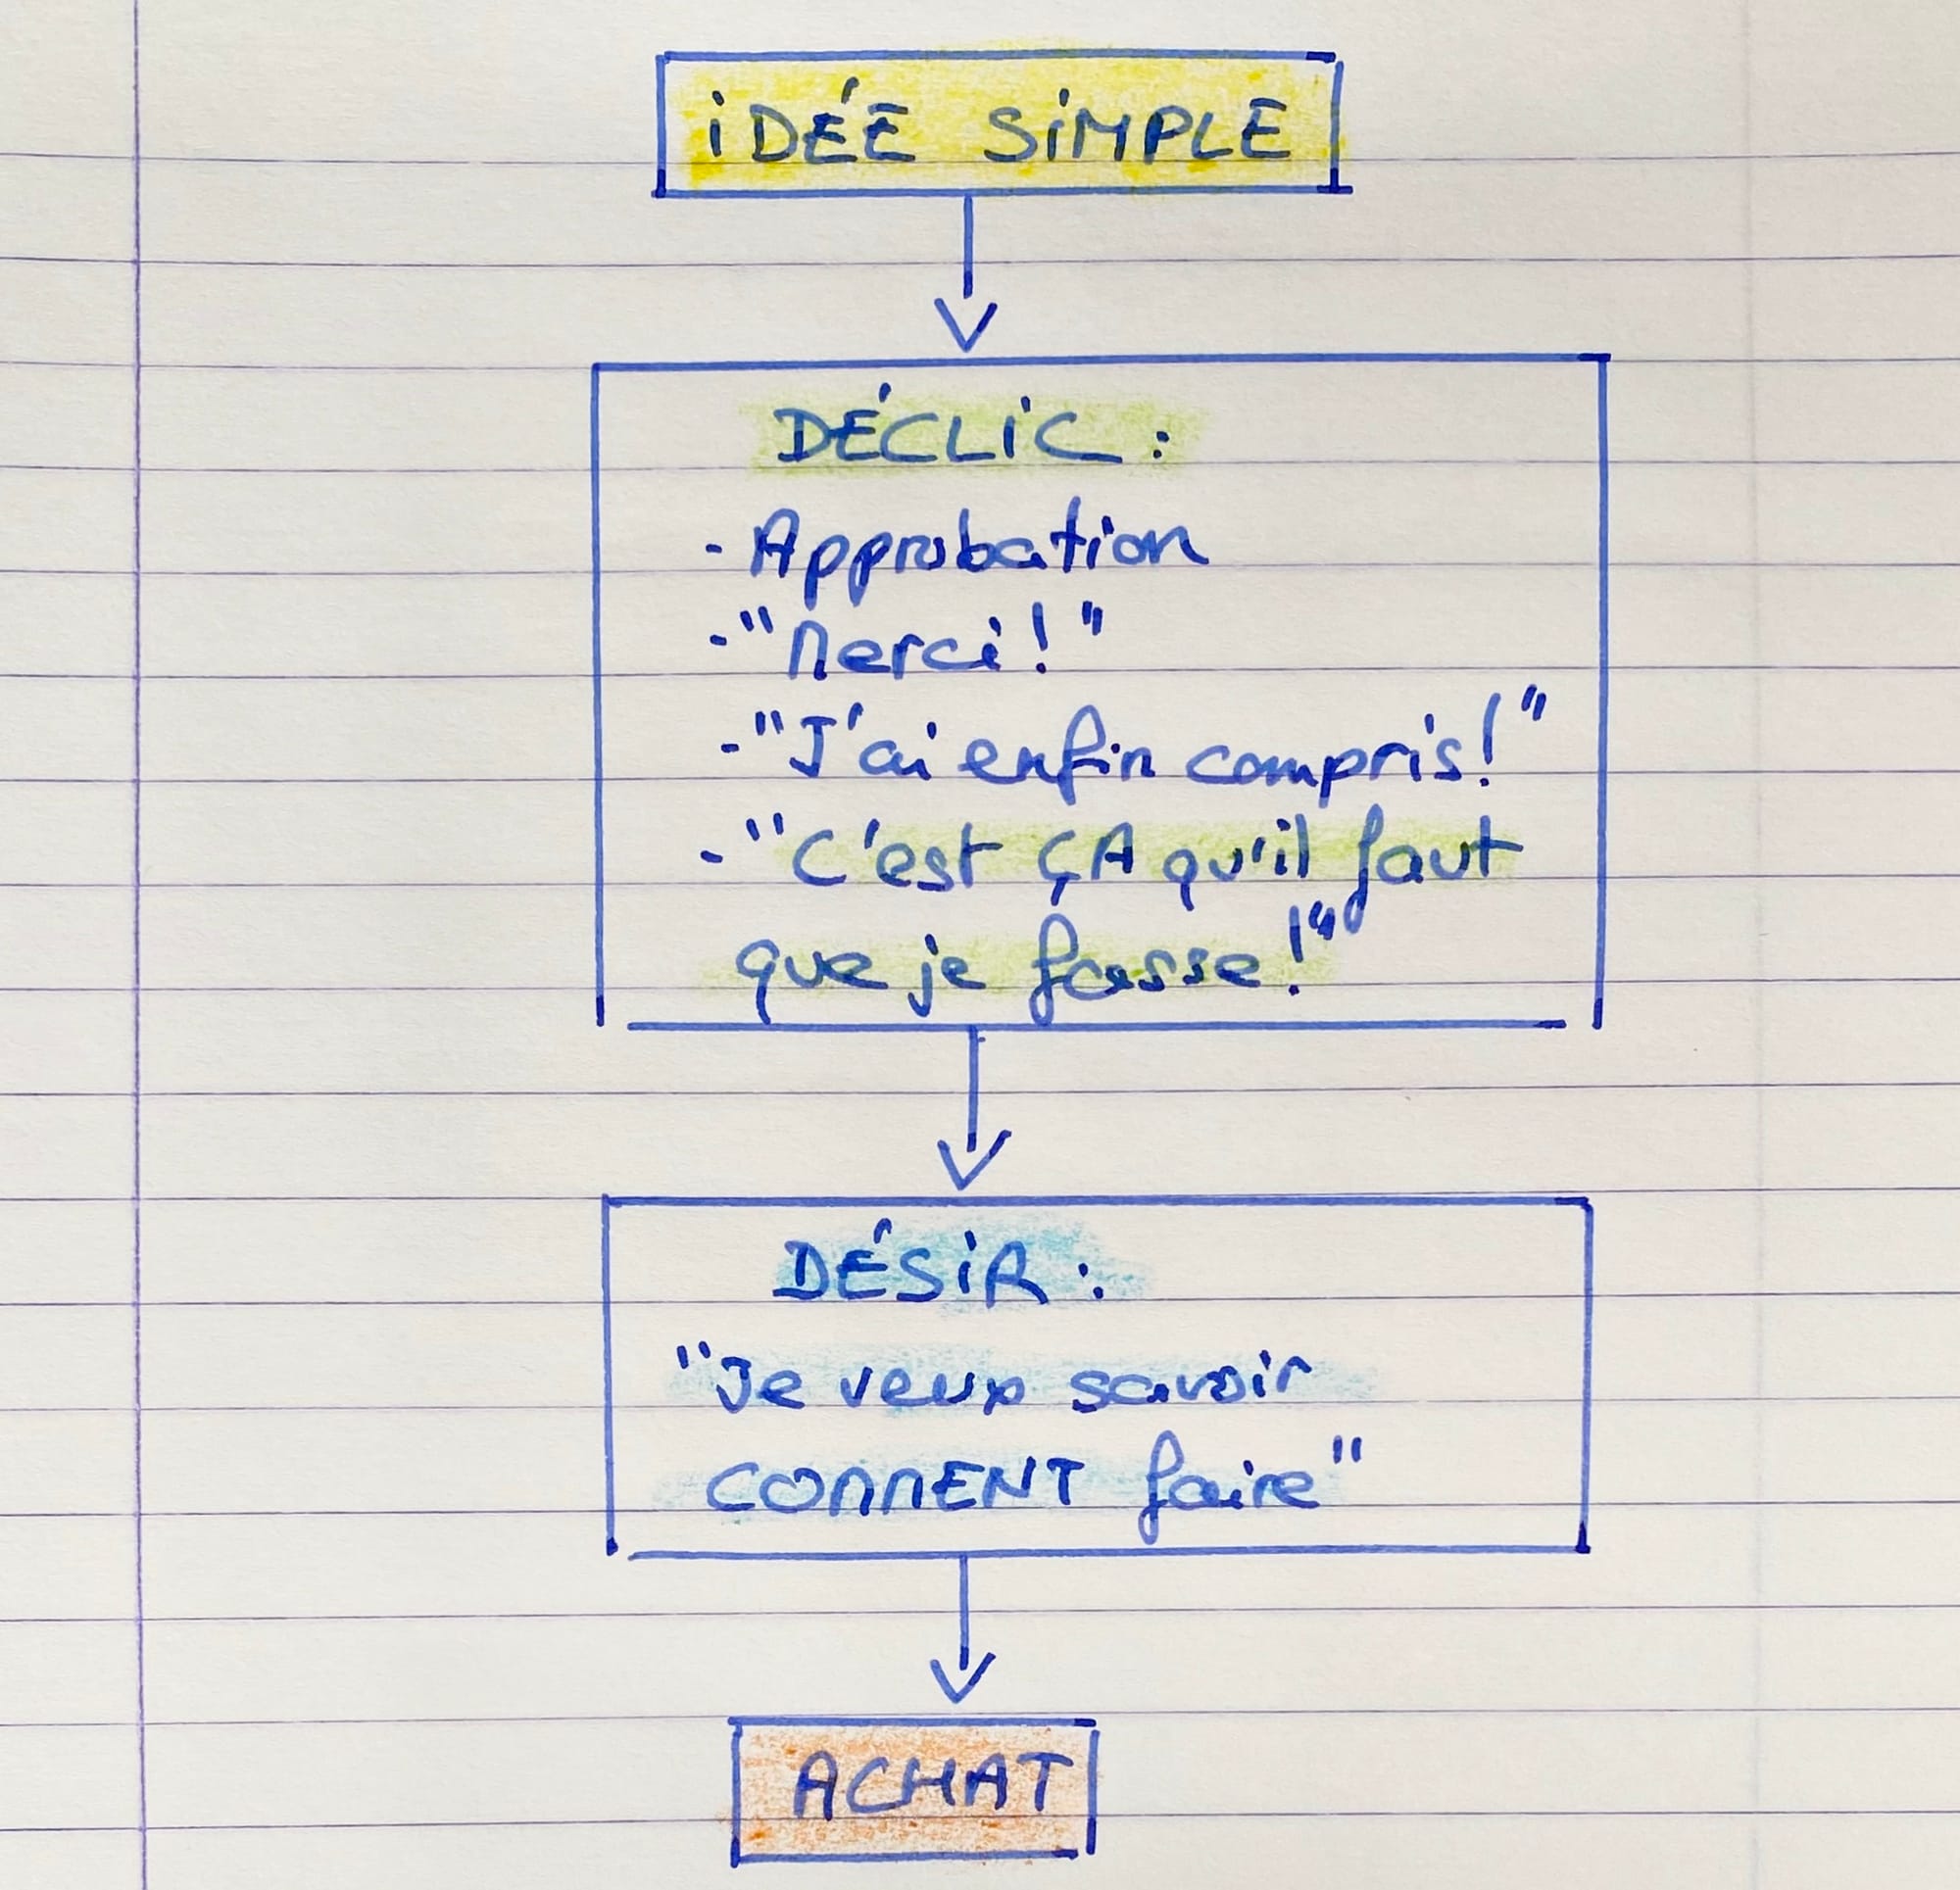 IDÉE SIMPLE
DÉCLIC :
- Approbation
- "Merci ! "
- "J'ai enfin compris ! "
- "C'est ÇA qu'il faut
que je fasse ! "
DÉSIR :
"Je veux savoir
COMMENT faire"
ACHAT